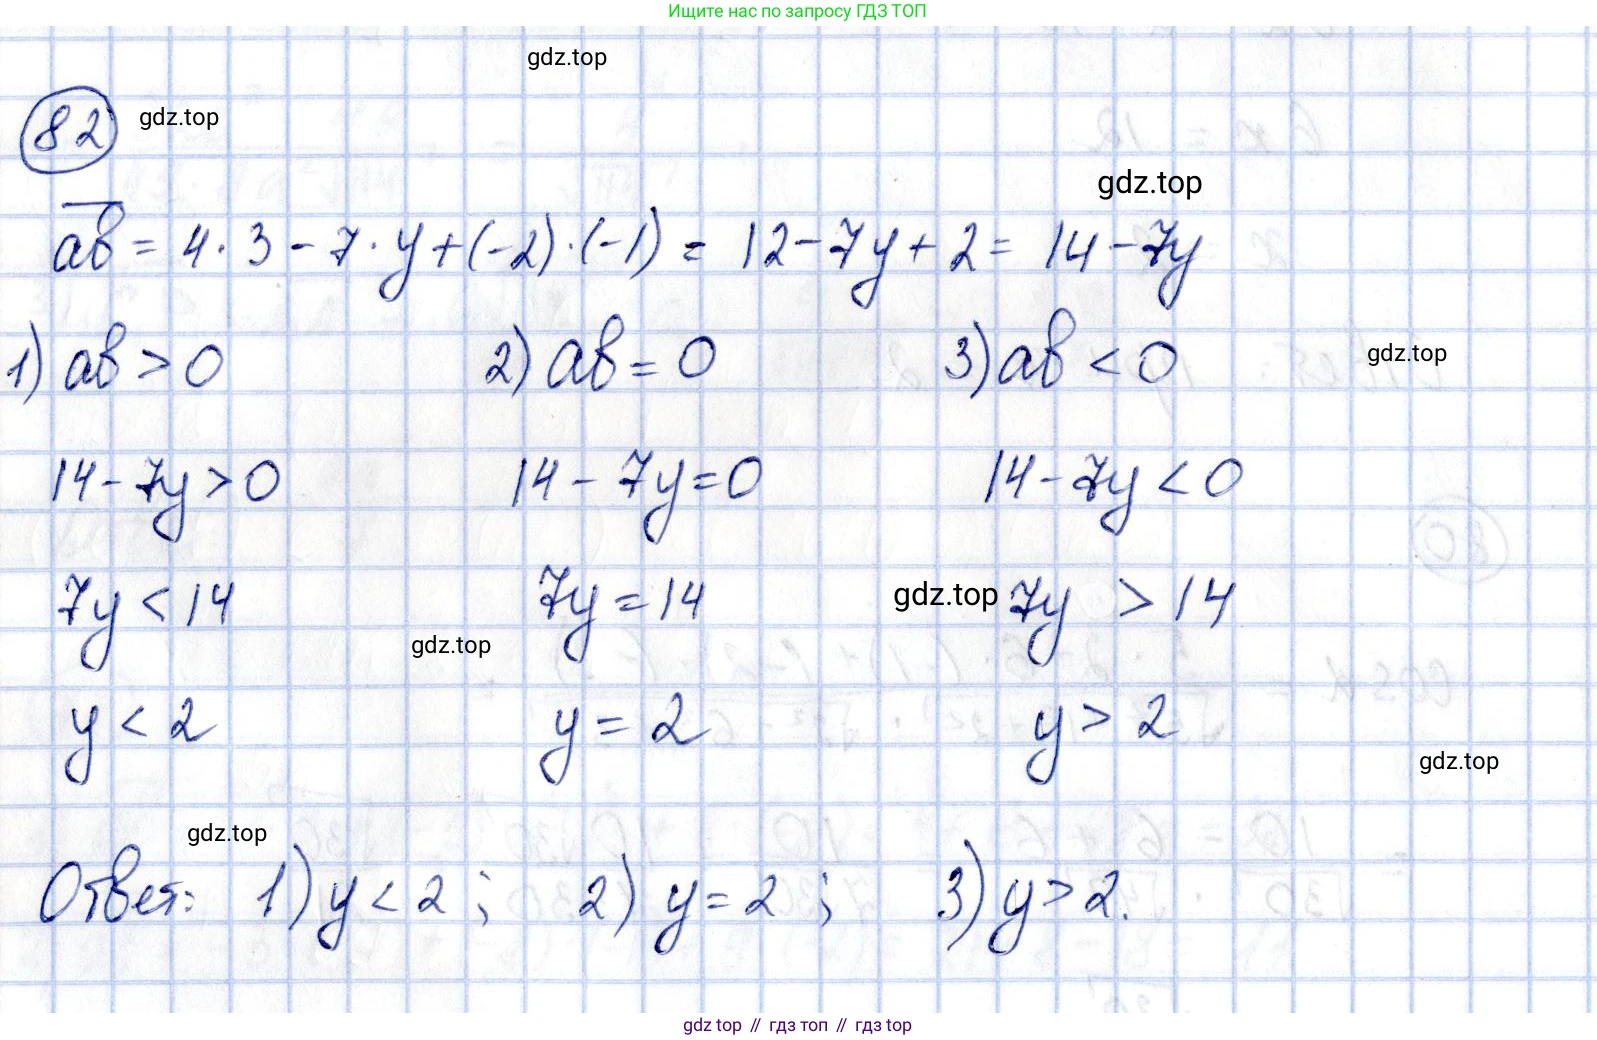 Ищите нас по запросу ГДЗ ТОП
gdz.top
82 gdz.top
gdz.top
ab = 4 · 3 - 7 · y + (-2) · (-1) = 12 - 7y + 2 = 14 - 7y
1) ab > 0 2) ab = 0 3) ab < 0 gdz.top
14 - 7y > 0 14 - 7y = 0 14 - 7y < 0
7y < 14 7y = 14 gdz.top 7y > 14
gdz.top
y < 2 y = 2 y > 2
gdz.top
gdz.top
Ответ: 1) y < 2 ; 2) y = 2 ; 3) y > 2.
gdz top // гдз топ // gdz top